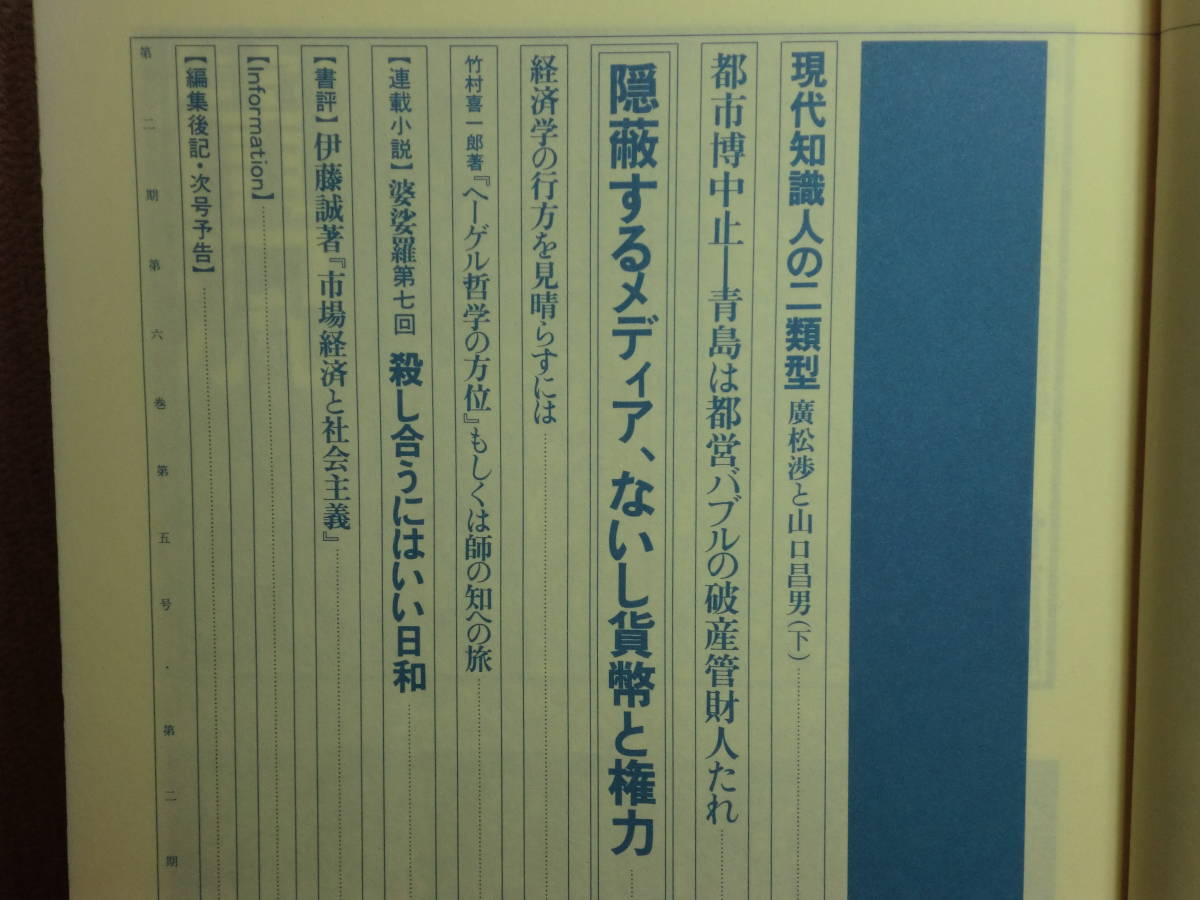 現代知識人の二類型 廣松渉と山口昌男(下)
都市博中止―青島は都営バブルの破産管財人たれ
隠蔽するメディア、ないし貨幣と権力
経済学の行方を見晴らすには
竹村喜一郎著『ヘーゲル哲学の方位』もしくは師の知への旅
【連載小説】婆娑羅第七回 殺し合うにはいい日和
【書評】伊藤誠著『市場経済と社会主義』
【Information】
【編集後記・次号予告】
第二期第六巻第五号・第二期